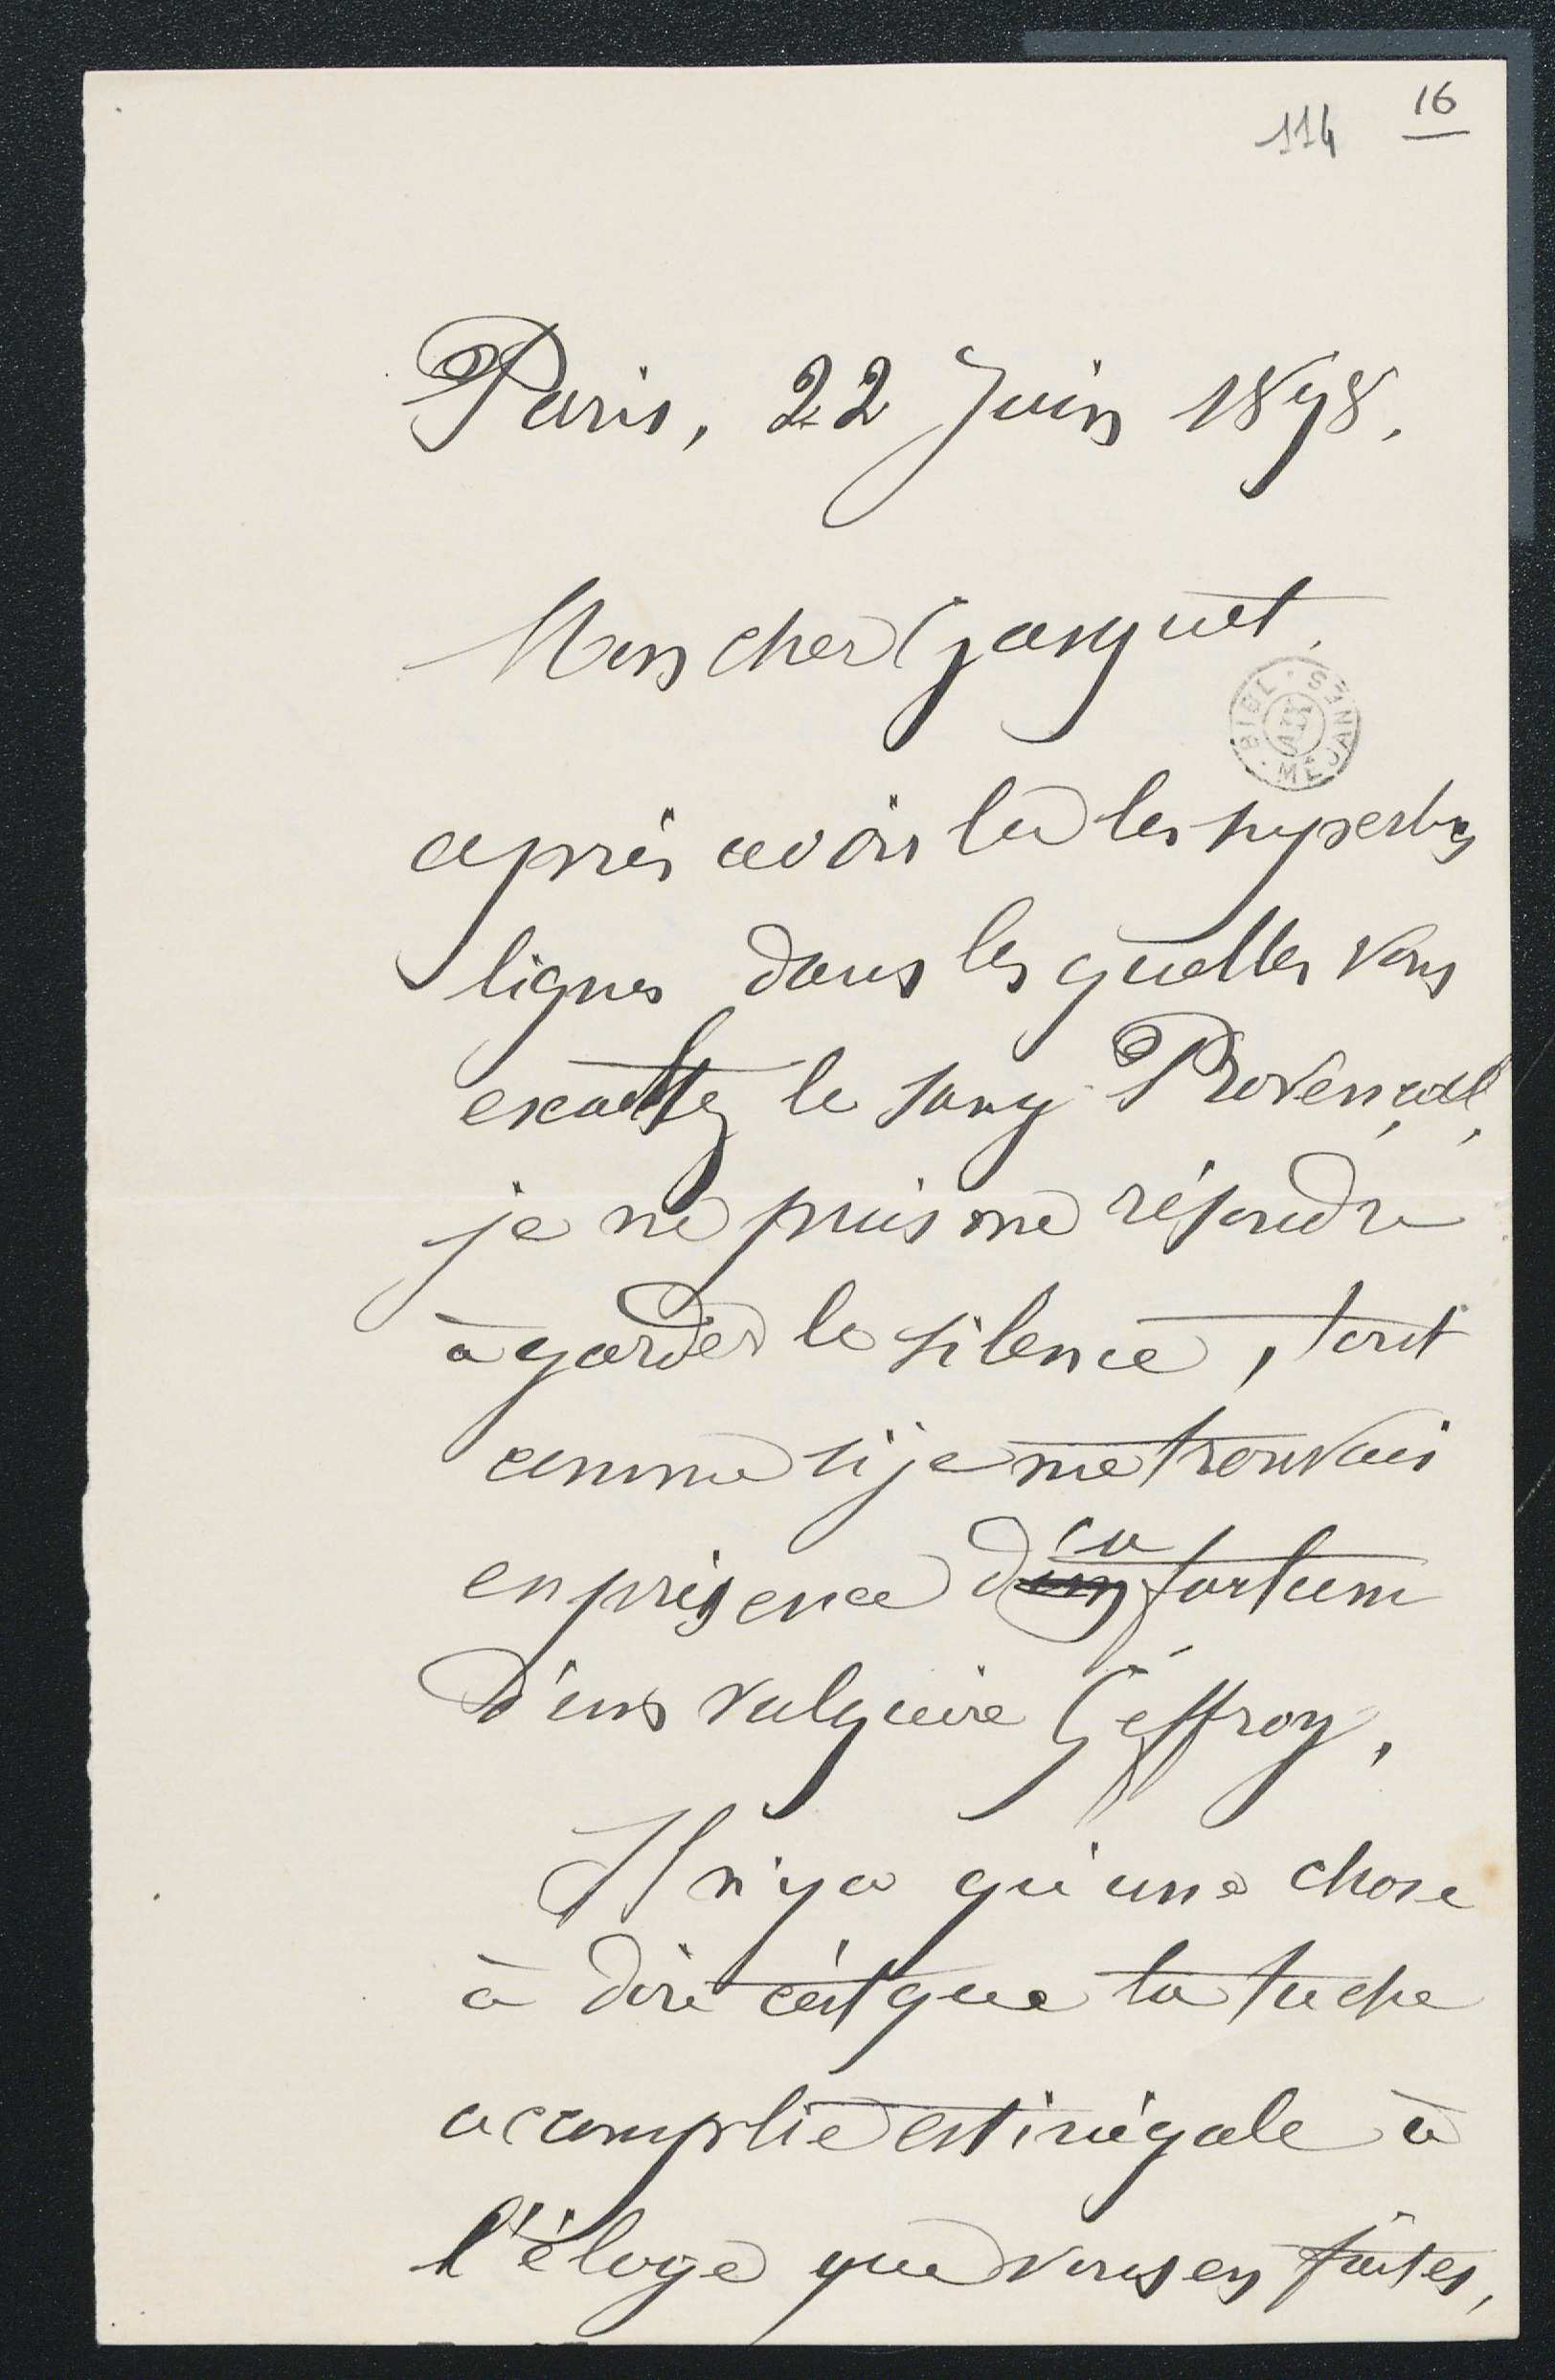 16
114
Paris, 22 Juin 1898.
Mon cher Gasquet.
BIBL · MÉJANES · AIX
après avoir lu les superbes
lignes dans lesquelles vous
exaltez le sang Provençal,
je ne puis me résoudre
à garder le silence, tout
comme si je me trouvais
en présence du factum
d'un vulgaire Géffroy.
Il n'y a qu'une chose
à dire c'est que la tache
acomplie est inégale à
l'éloge que vous en faites,